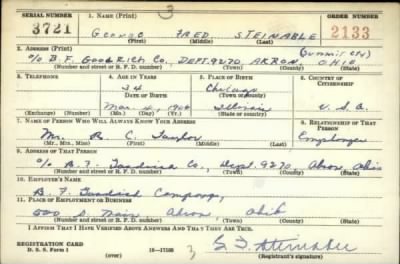 3
SERIAL NUMBER 1. NAME (Print) ORDER NUMBER
3721 George FRED STEINABLE 2133
(First) (Middle) (Last)
2. ADDRESS (Print) (Summit Cty)
c/o B.F. Goodrich Co, DEPT. 9270 AKRON, OHIO
(Number and street or R. F. D. number) (Town) (County) (State)
3. TELEPHONE 4. AGE IN YEARS 5. PLACE OF BIRTH 6. COUNTRY OF CITIZENSHIP
34 Chicago
DATE OF BIRTH (Town or county)
Mar. 4, Illinois U.S.A.
(Exchange) (Number) (Mo.) (Day) (Yr.) (State or country)
7. NAME OF PERSON WHO WILL ALWAYS KNOW YOUR ADDRESS 8. RELATIONSHIP OF THAT PERSON
Mr. R. C. Taylor Employer
(Mr., Mrs., Miss) (First) (Middle) (Last)
9. ADDRESS OF THAT PERSON
c/o B. F. Goodrich Co., Dept. 9270, Akron, Ohio
(Number and street or R. F. D. number) (Town) (County) (State)
10. EMPLOYER'S NAME
B. F. Goodrich Company,
11. PLACE OF EMPLOYMENT OR BUSINESS
500 S. Main, Akron, Ohio
(Number and street or R. F. D. number) (Town) (County) (State)
I AFFIRM THAT I HAVE VERIFIED ABOVE ANSWERS AND THAT THEY ARE TRUE.
REGISTRATION CARD
D. S. S. Form 1 16—17105 G. F. Steinable
(over) 3 (Registrant's signature)